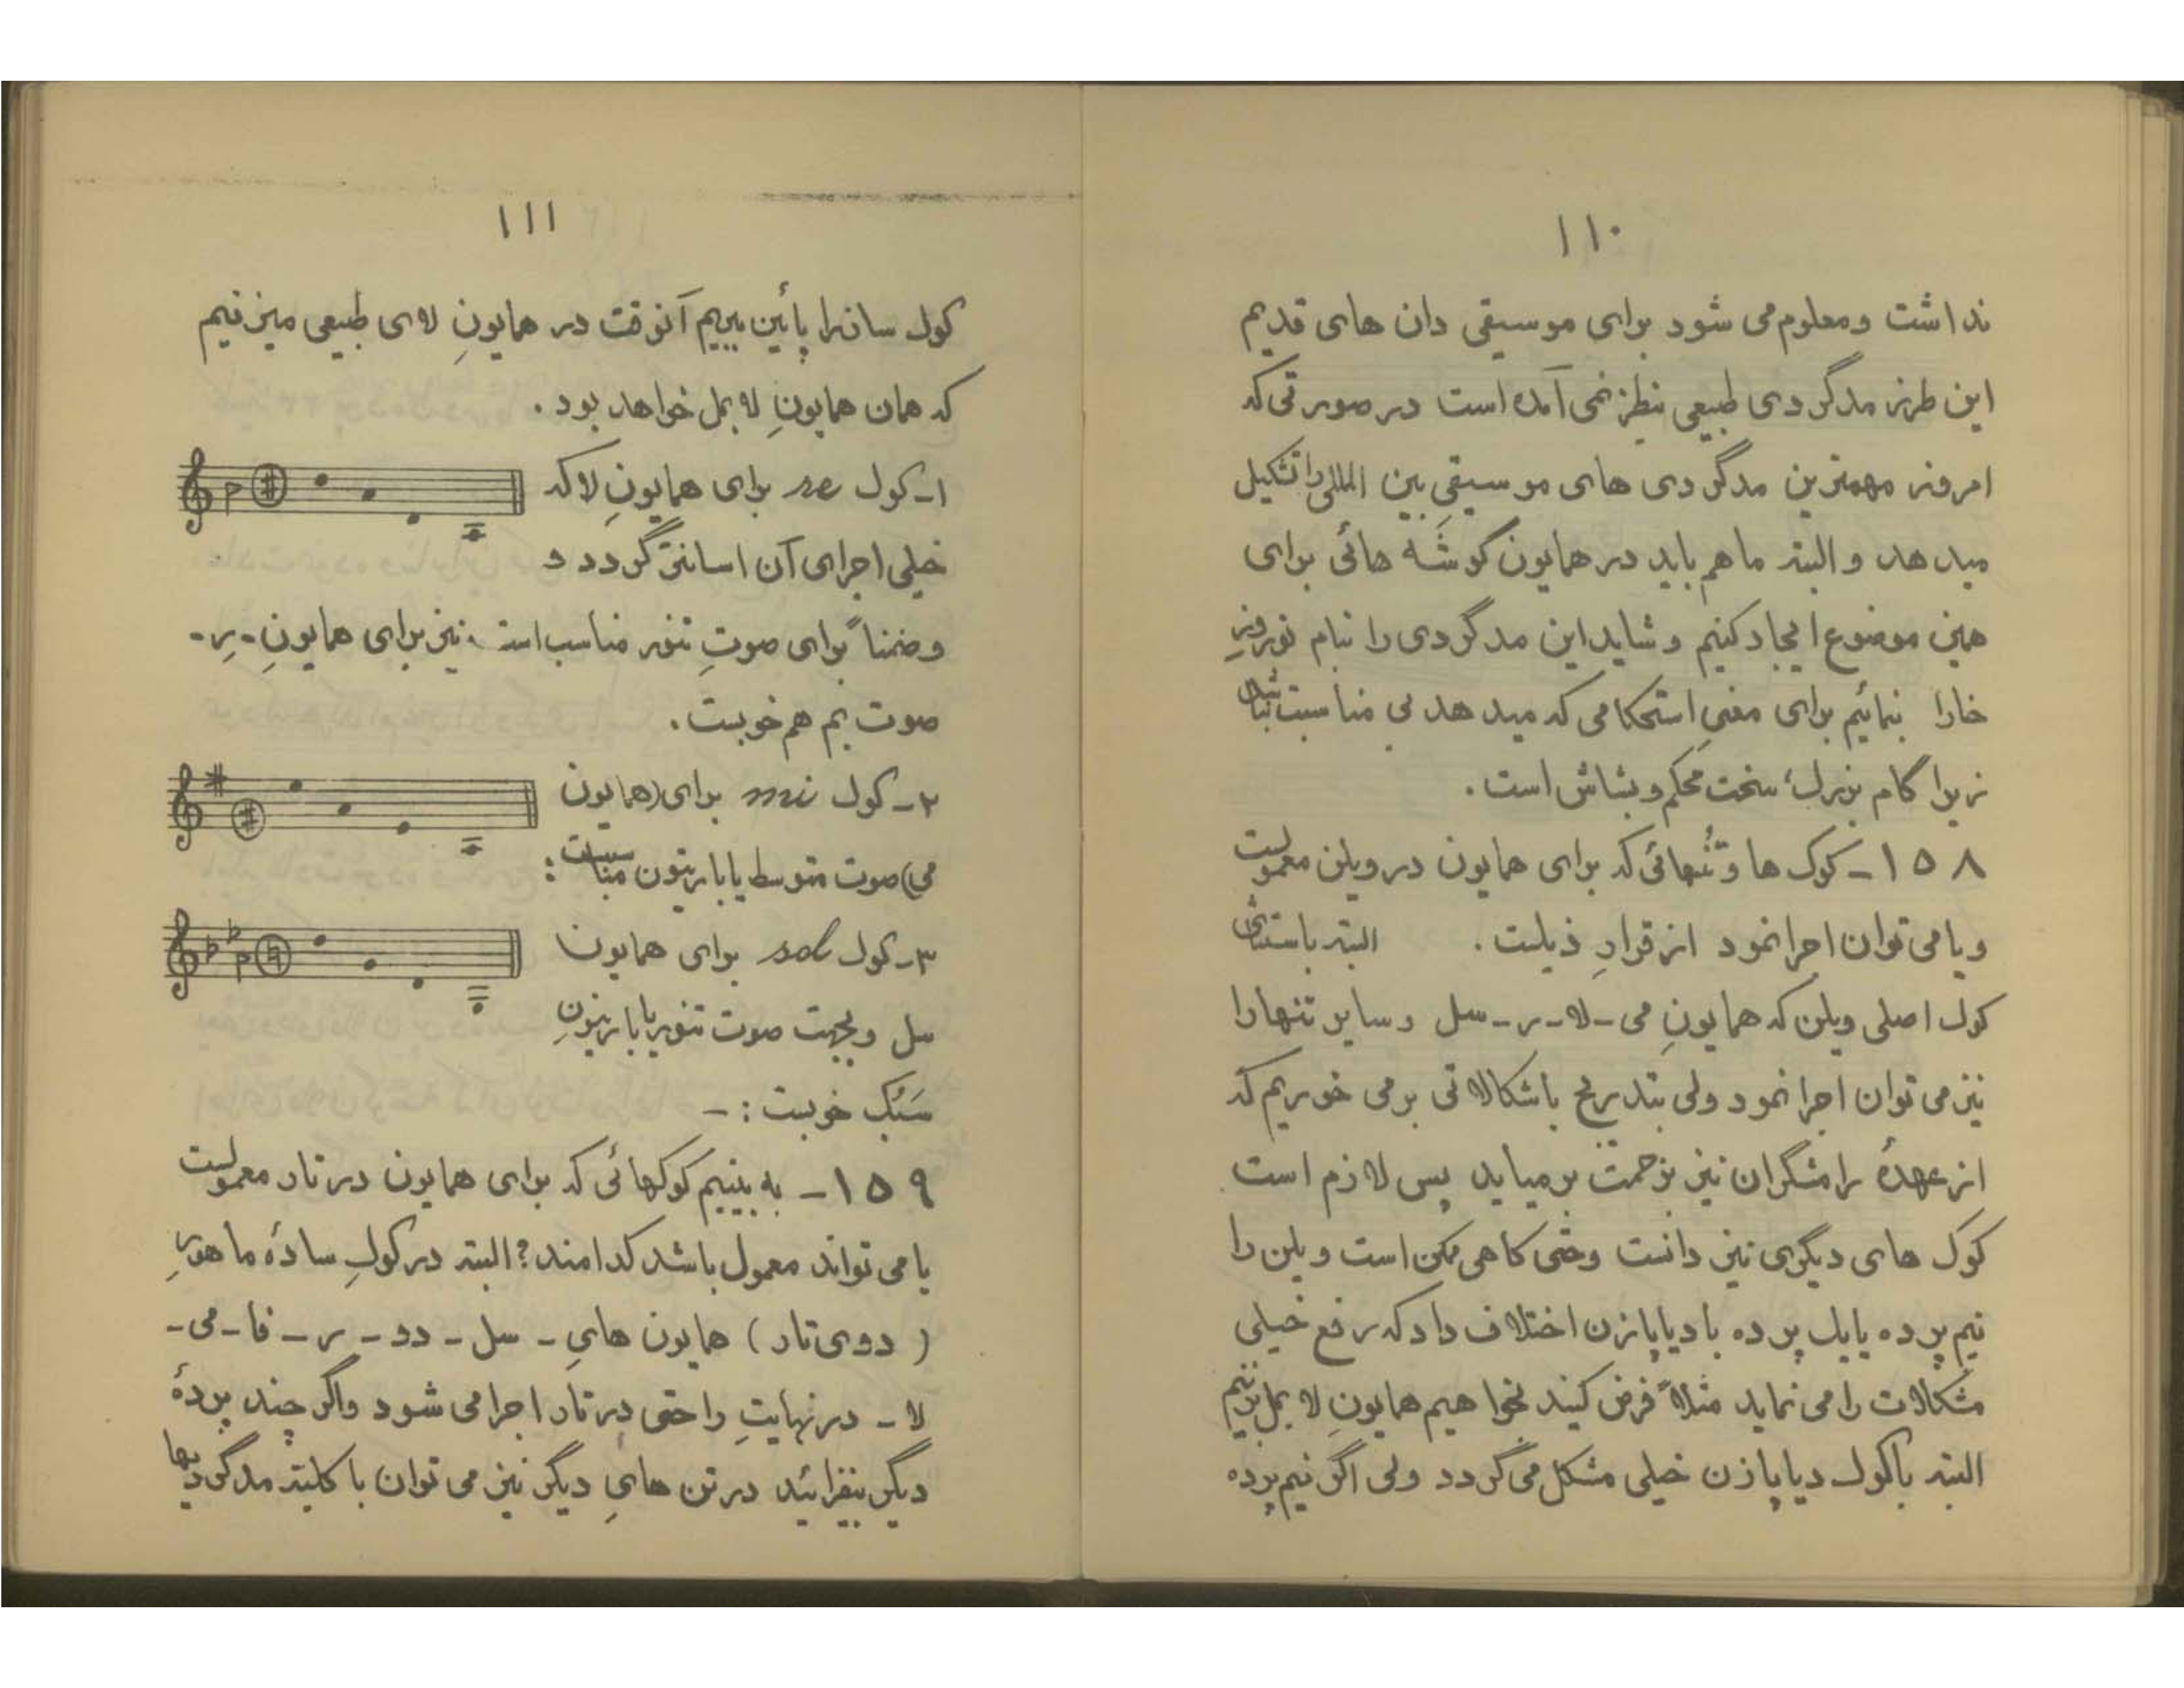 ۱۱۰
نداشت و معلوم می شود برای موسیقی دان های قدیم
این طرز مدگردی طبیعی بنظر نمی آمده است در صورتی که
امروز مهمترین مدگردی های موسیقیِ بین المللی را تشکیل
میدهد و البته ما هم باید در همایون گوشه هائی برای
همین موضوع ایجاد کنیم و شاید این مدگردی را بنام نوروزِ
خارا بنمائیم برای معنیِ استحکامی که میدهد بی مناسبت نباشد
زیرا گام بزرگ؛ سخت محکم و بشاش است.
۱۵۸ـ کوک ها و تُنهائی که برای همایون در ویلن معمولست
و یا می توان اجرا نمود از قرارِ ذیلست. البته باستثنای
کوک اصلی ویلن که همایونِ می ـ لا ـ ر ـ سل و سایر تنها را
نیز می توان اجرا نمود ولی بتدریج باشکالاتی بر می خوریم که
از عهدهٔ رامشگران نیز بزحمت برمیاید پس لازم است
کوک های دیگری نیز دانست و حتی گاهی ممکن است ویلن را
نیم پرده یا یک پرده با دیاپازن اختلاف داد که رفع خیلی
مشکلات را می نماید مثلاً فرض کنید بخواهیم همایونِ لا بمل بزنیم
البته با کوک دیاپازن خیلی مشکل می گردد ولی اگر نیم پرده
۱۱۱
کوک ساز را پائین ببریم آنوقت در همایونِ لای طبیعی میزنیم
که همان همایونِ لا بمل خواهد بود.
۱ـ کوک re برای همایونِ لا که
خیلی اجرای آن اسانتر گردد و
و ضمناً برای صوتِ تنور مناسب است، نیز برای همایونِ ـ رِ ـ
صوت بم هم خوبست.
۲ـ کوک mi برای (همایون
می) صوت متوسط یا باریتون مناسبست:
۳ـ کوک sol برای همایون
سل و بجهت صوت تنور یا باریتونِ
سَبُک خوبست : ـ
۱۵۹ـ به بینیم کوکهائی که برای همایون در تار معمولست
یا می تواند معمول باشد کدامند؟ البته در کوکِ سادهٔ ماهورِ
( دوی تار ) همایون هایِ ـ سل ـ دو ـ ر ـ فا ـ می ـ
لا ـ در نهایتِ راحتی در تار اجرا می شود و اگر چند پردهٔ
دیگر بیفزائید در تن هایِ دیگر نیز می توان با کلیته مدگردیها